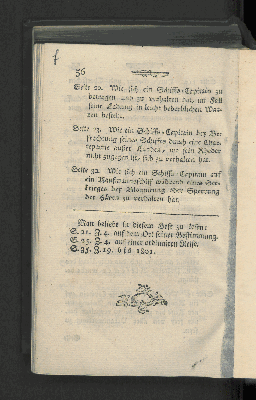 f
36
Seite 20. Wie sich ein Schiffs-Capitain zu
betragen und zu verhalten hat, im Fall
seine Ladung in leicht verderblichen Waa-
ren bestehe.
Seite 23. Wie ein Schiffs-Capitain bey Be-
frachtung seines Schiffes durch eine Char-
tepartie außer Landes, wo sein Rheder
nicht zugegen ist, sich zu verhalten hat.
Seite 32. Wie sich ein Schiffs-Capitain auf
ein Kauffarteyschiff während eines See-
krieges bey Blokirung oder Sperrung
der Häfen zu verhalten hat.
Man beliebe in diesem Heft zu lesen:
S. 21. Z. 4. auf dem Ort seiner Bestimmung.
S. 25. Z. 4. auf einer ordinairen Reise.
S. 35. Z. 19. bis 1801.